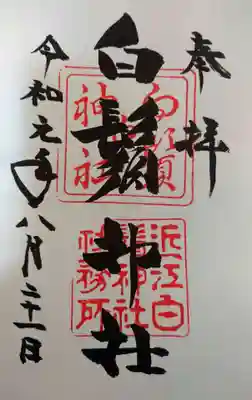 奉拝
白鬚神社
令和元年八月二十一日
白鬚神社
近江白鬚神社社務所